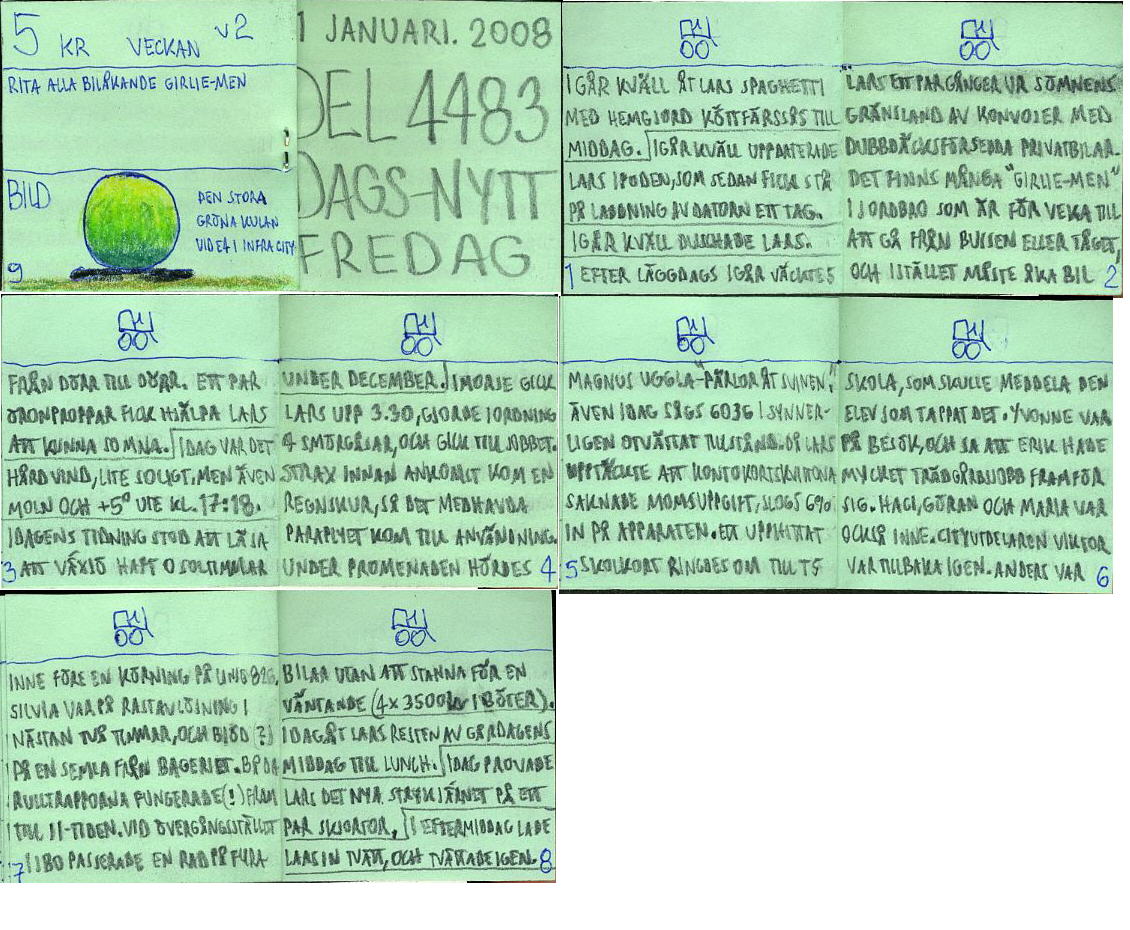 5 KR VECKAN V2
RITA ALLA BILÅKANDE GIRLIE-MEN
BILD
DEN STORA
GRÖNA KULAN
VID E4 I INFRA CITY
9
1 JANUARI. 2008
DEL 4483
DAGS-NYTT
FREDAG
I GÅR KVÄLL ÅT LARS SPAGHETTI
MED HEMGJORD KÖTTFÄRSSÅS TILL
MIDDAG. IGÅR KVÄLL UPPDATERADE
LARS IPODEN, SOM SEDAN FICK STÅ
PÅ LADDNING AV DATORN ETT TAG.
IGÅR KVÄLL DUSCHADE LARS.
EFTER LÄGGDAGS IGÅR VÄCKTES
1
LARS ETT PAR GÅNGER UR SÖMNENS
GRÄNSLAND AV KONVOJER MED
DUBBDÄCKSFÖRSEDDA PRIVATBILAR.
DET FINNS MÅNGA "GIRLIE-MEN"
I JORDBRO SOM ÄR FÖR VEKA TILL
ATT GÅ FRÅN BUSSEN ELLER TÅGET,
OCH ISTÄLLET MÅSTE ÅKA BIL
2
FRÅN DÖRR TILL DÖRR. ETT PAR
ÖRONPROPPAR FICK HJÄLPA LARS
ATT KUNNA SOMNA. IDAG VAR DET
HÅRD VIND, LITE SOLIGT, MEN ÄVEN
MOLN OCH +5° UTE KL. 17:18.
I DAGENS TIDNING STOD ATT LÄSA
ATT VÄXJÖ HAFT 0 SOLTIMMAR
3
UNDER DECEMBER. IMORSE GICK
LARS UPP 3.30, GJORDE IORDNING
4 SMÖRGÅSAR, OCH GICK TILL JOBBET.
STRAX INNAN ANKOMST KOM EN
REGNSKUR, SÅ DET MEDHAVDA
PARAPLYET KOM TILL ANVÄNDNING.
UNDER PROMENADEN HÖRDES
4
MAGNUS UGGLA "PÄRLOR ÅT SVINEN".
ÄVEN IDAG SÅGS 6036 I SYNNER-
LIGEN OTVÄTTAT TILLSTÅND. DÅ LARS
UPPTÄCKTE ATT KONTOKORTSKVITTONA
SAKNADE MOMSUPPGIFT, SLOGS 6%
IN PÅ APPARATEN. ETT UPPHITTAT
SKOLKORT RINGDES OM TILL TS
5
SKOLA, SOM SKULLE MEDDELA DEN
ELEV SOM TAPPAT DET. YVONNE VAR
PÅ BESÖK, OCH SA ATT ERIK HADE
MYCKET TRÄDGÅRDSJOBB FRAMFÖR
SIG. HAGI, GÖRAN OCH MARIA VAR
OCKSÅ INNE. CITYUTDELAREN VIKTOR
VAR TILLBAKA IGEN. ANDERS VAR
6
INNE FÖRE EN KÖRNING PÅ LINJE
SILVIA VAR PÅ RASTAVLÖSNING I
NÄSTAN TVÅ TIMMAR, OCH BJÖD (?)
PÅ EN SEMLA FRÅN BAGERIET. BÅDA
RULLTRAPPORNA FUNGERADE(!) FRAM
TILL 11-TIDEN. VID ÖVERGÅNGSSTÄLLET
I JBO PASSERADE EN RAD PÅ FYRA
7
BILAR UTAN ATT STANNA FÖR EN
VÄNTANDE (4x3500kr I BÖTER).
IDAG ÅT LARS RESTEN AV GÅRDAGENS
MIDDAG TILL LUNCH. IDAG PROVADE
LARS DET NYA STRYKJÄRNET PÅ ETT
PAR SKJORTOR. I EFTERMIDDAG LADE
LARS IN TVÄTT, OCH TVÄTTADE IGEN.
8